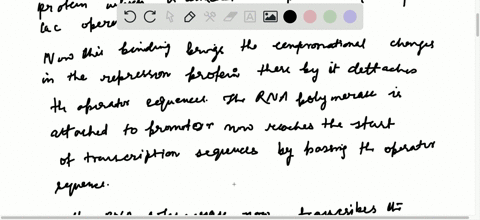 protein
lac oper
Now this binding brings the conformational changes
in the repression protein there by it dettaches
th operator sequences. The RNA polymerase is
attached to promotor now reaches the start
of transcription sequences by passing the operator
sequence.
the RNA now transcribes th